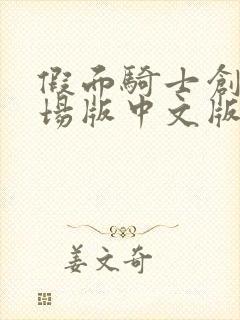 假面騎士創
場版中文版
姜文奇